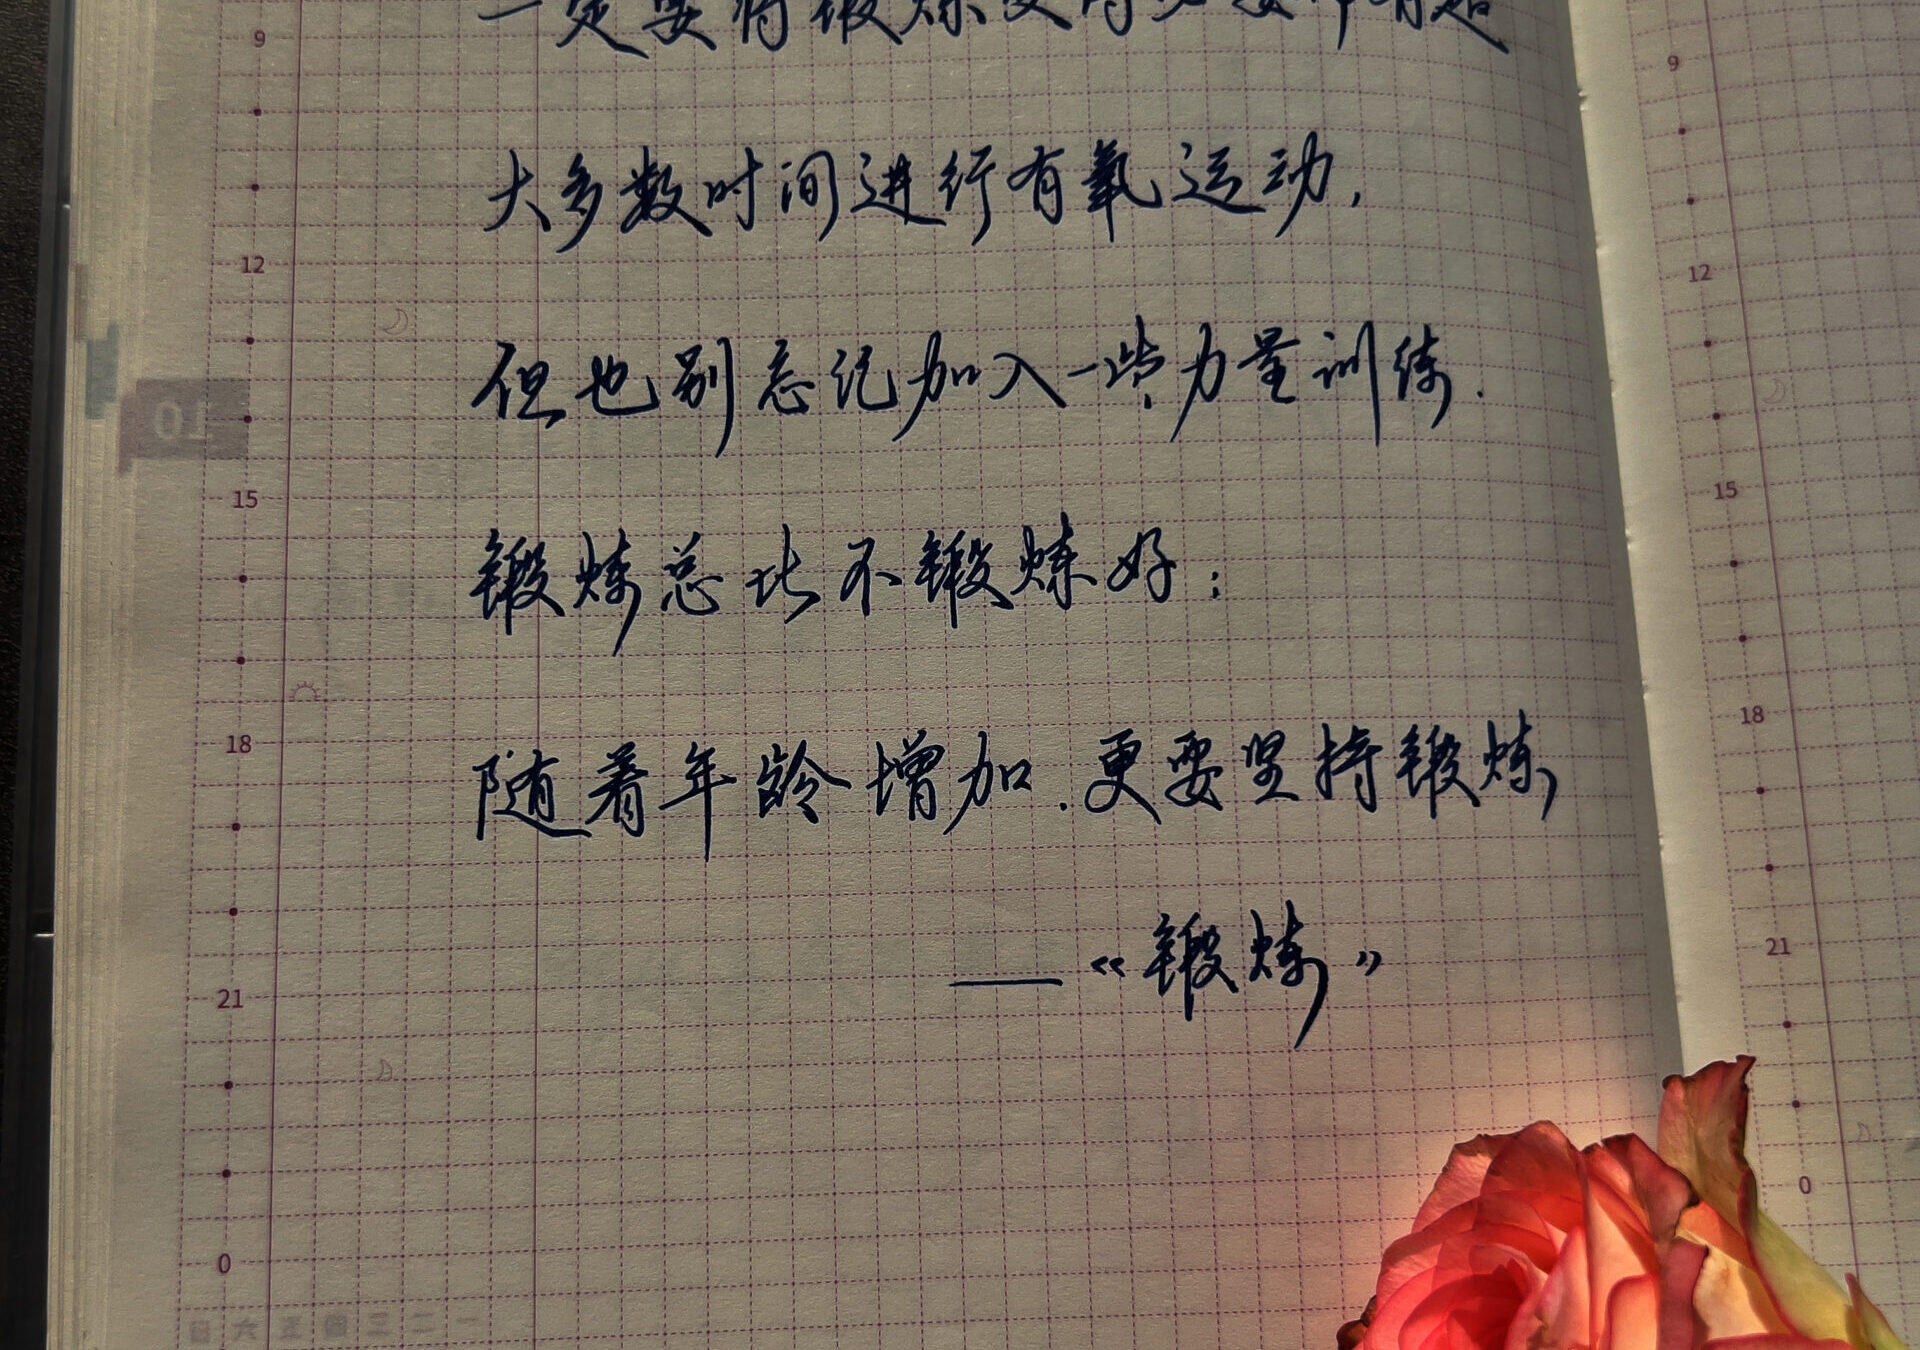 一定要将锻炼变得
大多数时间进行有氧运动,
但也别忘记加入一些力量训练.
锻炼总比不锻炼好;
随着年龄增加.更要坚持锻炼
——《锻炼》
9
12
15
18
21
0
01
9
12
15
18
21
0
一二三四五六日